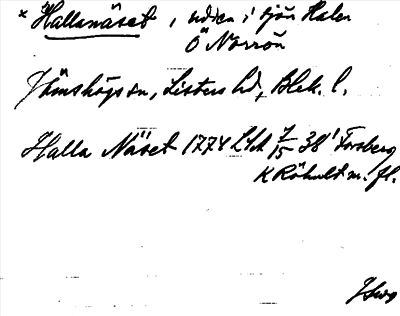 * Hallanäset, udden i sjön Halen
Ö Norrön
Jämshögs sn, Listers hd, Blek. l.
Halla Näset 1774 LSA 7/15 38' Forsberg
K Röhult m. fl.